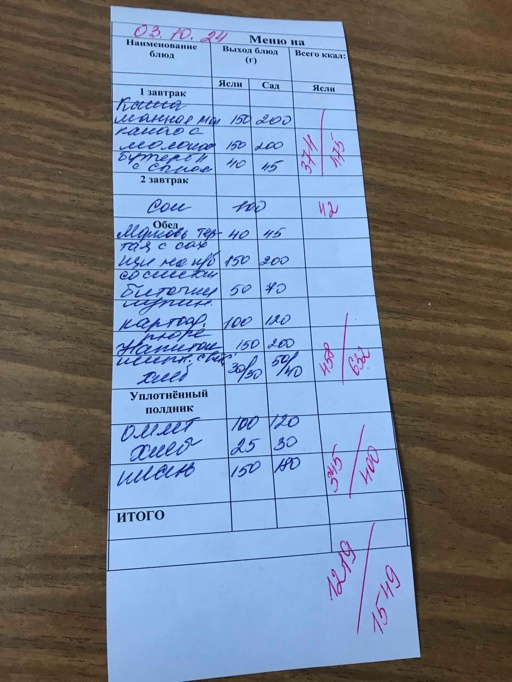 03.10.24 Меню на
Наименование блюд Выход блюд (г) Всего ккал:
Ясли Сад Ясли
1 завтрак
Каша
манная мол 150 200
какао с
молоком 150 200 374/475
бутерб
с сыром 40 45
2 завтрак
Сок 100 42
Обед
Морковь тер-
тая с сах 40 45
щи на к/б 150 200
со сметан
биточки 50 70
курин.
картоф. 100 120
пюре
Напиток 150 200 458/632
хлеб 30/30 50/40
Уплотнённый
полдник
омлет 100 120
хлеб 25 30
кисель 150 180 345/400
ИТОГО
1219/1549